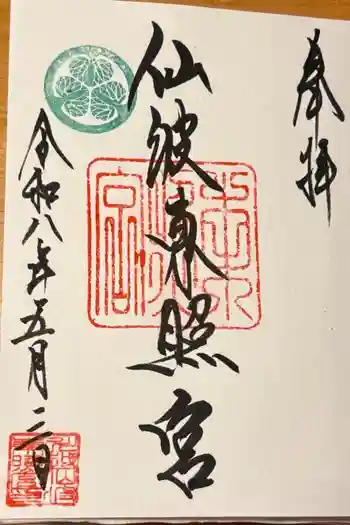 奉拝
仙波東照宮
令和八年五月二日